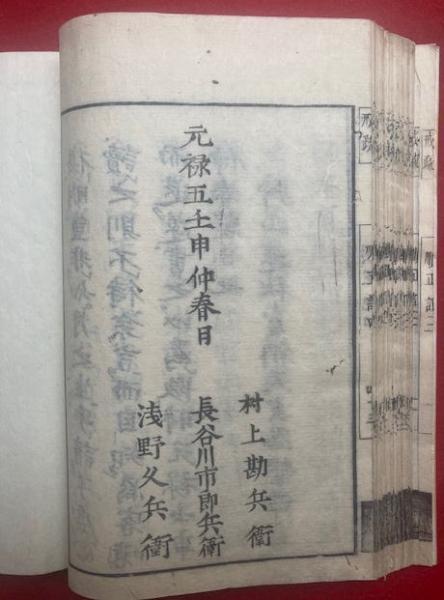 元禄五壬申仲春日
村上勘兵衛
長谷川市郎兵衛
浅野久兵衛